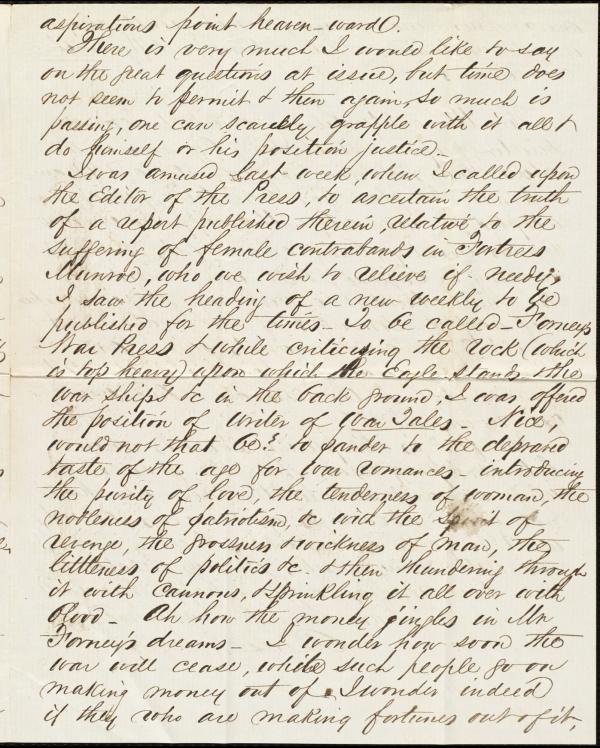 aspirations point heaven-ward.
There is very much I would like to say
on the great questions at issue, but time does
not seem to permit & then again, so much is
passing, one can scarcely grapple with it all &
do himself or his position justice-
I was amused last week, when I called upon
the Editor of the Press, to ascertain the truth
of a report published therein, relative to the
suffering of female contrabands in Fortress
Munroe, who we wish to relieve if needy.
I saw the heading of a new weekly to be
published for the times- To be called- Forney's
War Press & while criticising the rock (which
is top heavy) upon which the Eagle stands & the
war ships &c in the back ground, I was offered
the position of writer of War Tales- Nice,
would not that be? to pander to the depraved
taste of the age for war romances- introducing
the purity of love, the tenderness of woman, the
nobleness of patriotism, &c with the spirit of
revenge, the grossness & wickness of man, the
littleness of politics &c. & then thundering through
it with cannons, & sprinkling it all over with
blood- Ah how the money jingles in Mr
Forney's dreams- I wonder how soon the
war will cease, while such people go on
making money out of. I wonder indeed
if they who are making fortunes out of it,